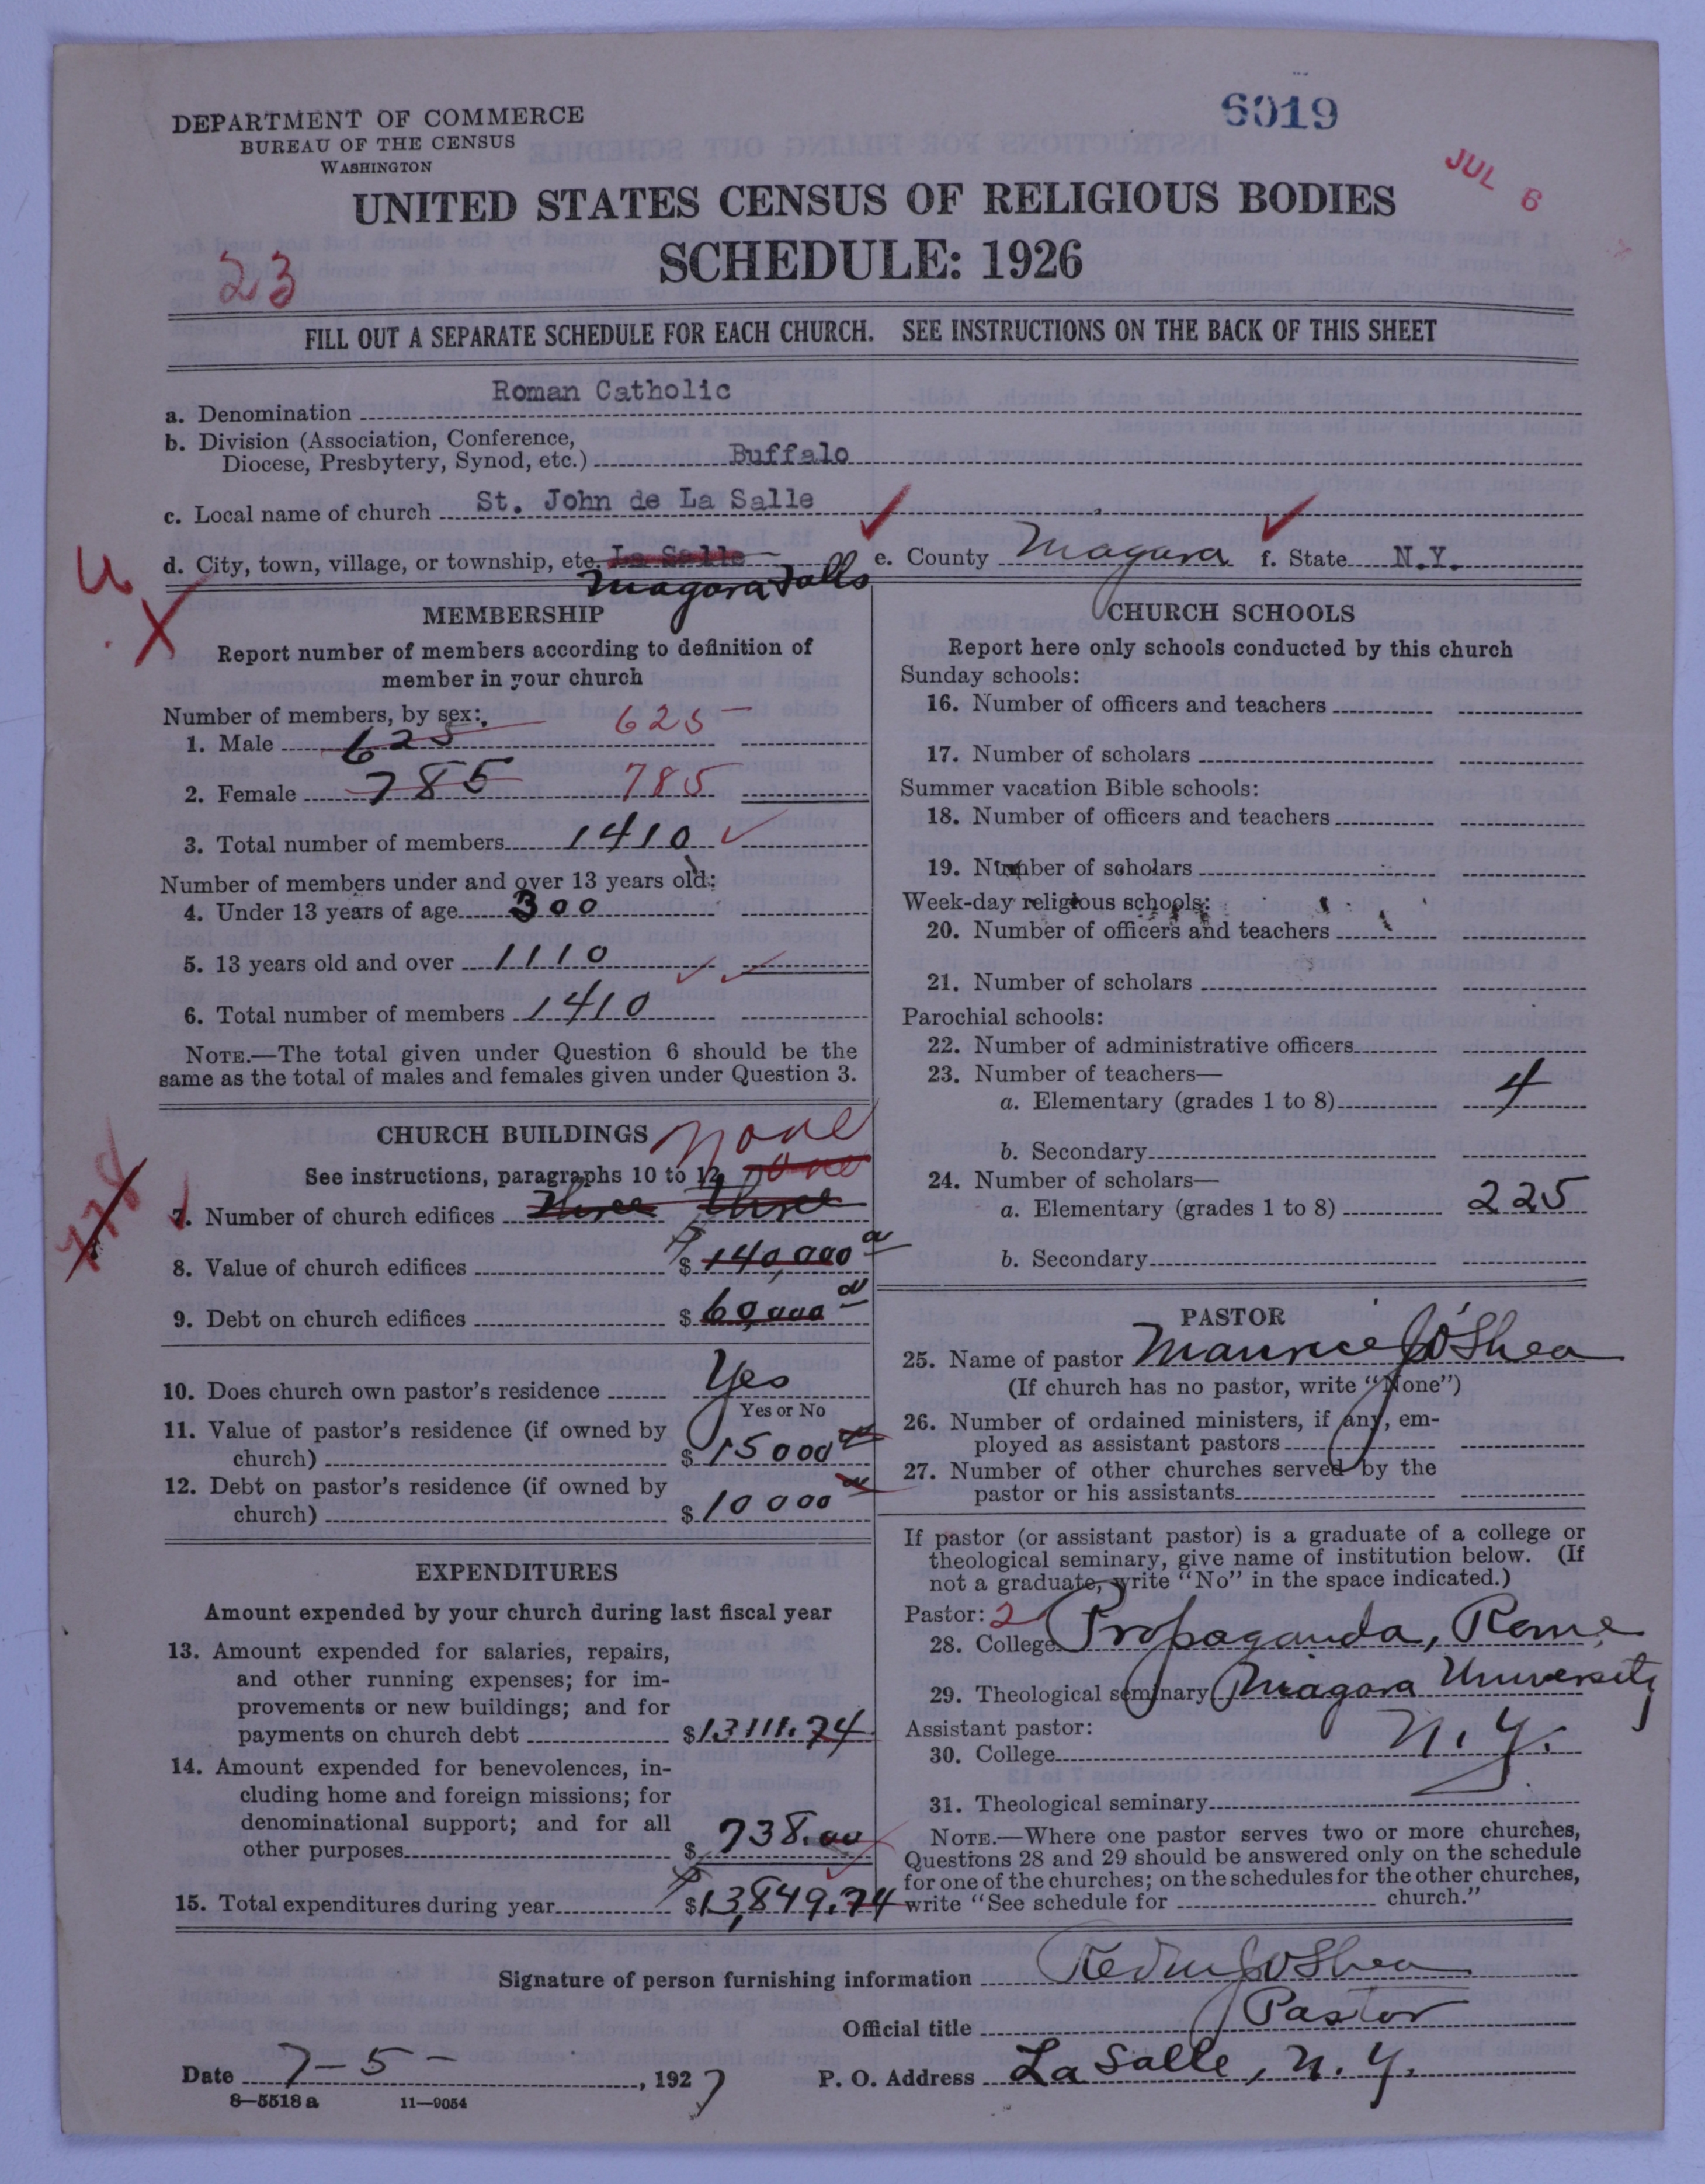 6019
JUL 6
DEPARTMENT OF COMMERCE
BUREAU OF THE CENSUS
WASHINGTON
UNITED STATES CENSUS OF RELIGIOUS BODIES
SCHEDULE: 1926
23
FILL OUT A SEPARATE SCHEDULE FOR EACH CHURCH. SEE INSTRUCTIONS ON THE BACK OF THIS SHEET
a. Denomination Roman Catholic
b. Division (Association, Conference,
Diocese, Presbytery, Synod, etc.) Buffalo
c. Local name of church St. John de La Salle
d. City, town, village, or township, etc. La Salle e. County Niagara f. State N.Y.
Niagara Falls
U
X
MEMBERSHIP
Report number of members according to definition of
member in your church
Number of members, by sex:
1. Male 625 625
2. Female 785 785
3. Total number of members 1410
Number of members under and over 13 years old:
4. Under 13 years of age 300
5. 13 years old and over 1110
6. Total number of members 1410
NOTE.—The total given under Question 6 should be the
same as the total of males and females given under Question 3.
CHURCH BUILDINGS none
See instructions, paragraphs 10 to 12 one
778
7. Number of church edifices three three
8. Value of church edifices $ 140,000
9. Debt on church edifices $ 60,000
10. Does church own pastor's residence Yes
Yes or No
11. Value of pastor's residence (if owned by
church) $ 15000
12. Debt on pastor's residence (if owned by
church) $ 10000
EXPENDITURES
Amount expended by your church during last fiscal year
13. Amount expended for salaries, repairs,
and other running expenses; for im-
provements or new buildings; and for
payments on church debt $13111.74
14. Amount expended for benevolences, in-
cluding home and foreign missions; for
denominational support; and for all
other purposes $ 738.00
15. Total expenditures during year $13,849.74
CHURCH SCHOOLS
Report here only schools conducted by this church
Sunday schools:
16. Number of officers and teachers
17. Number of scholars
Summer vacation Bible schools:
18. Number of officers and teachers
19. Number of scholars
Week-day religious schools:
20. Number of officers and teachers
21. Number of scholars
Parochial schools:
22. Number of administrative officers
23. Number of teachers—
a. Elementary (grades 1 to 8) 4
b. Secondary
24. Number of scholars—
a. Elementary (grades 1 to 8) 225
b. Secondary
PASTOR
25. Name of pastor Maurice J O'Shea
(If church has no pastor, write "None")
26. Number of ordained ministers, if any, em-
ployed as assistant pastors
27. Number of other churches served by the
pastor or his assistants
If pastor (or assistant pastor) is a graduate of a college or
theological seminary, give name of institution below. (If
not a graduate, write "No" in the space indicated.)
Pastor: 2
28. College Propaganda, Rome
29. Theological seminary Niagara University
Assistant pastor: N.Y.
30. College
31. Theological seminary
NOTE.—Where one pastor serves two or more churches,
Questions 28 and 29 should be answered only on the schedule
for one of the churches; on the schedules for the other churches,
write "See schedule for church."
Signature of person furnishing information Rev M J O'Shea
Official title Pastor
Date 7-5-, 1927 P. O. Address La Salle, N.Y.
8—5518a 11—9054